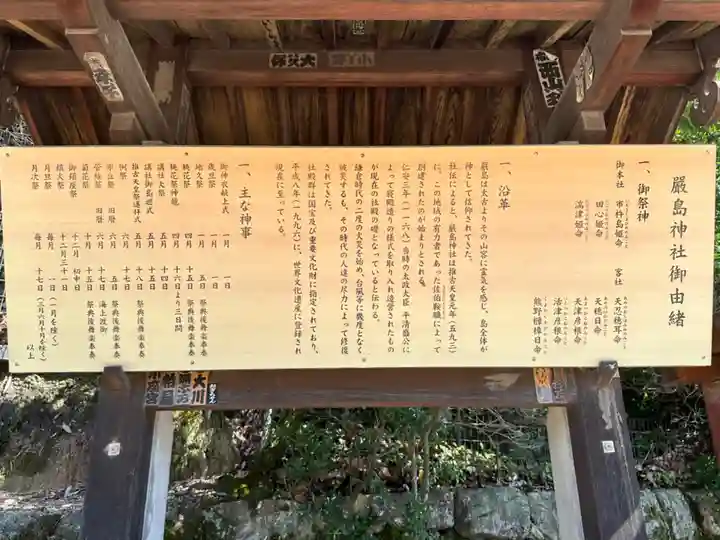 嚴島神社御由緒
一、御祭神
御本社
市杵島姫命
田心姫命
湍津姫命
客社
天忍穂耳命
天穂日命
天津彦根命
活津彦根命
熊野櫲樟日命
一、沿革
嚴島は太古よりその山容に霊気を感じ、島全体が
神として信仰されてきた。
社伝によると、嚴島神社は推古天皇元年(五九三)
に、この地域の有力者であった佐伯鞍職によって
創建されたのが始まりとされる。
仁安三年(一一六八)当時の太政大臣 平清盛公に
よって寝殿造りの様式を取り入れ造営されたもの
が現在の社殿の礎となっていると伝わる。
鎌倉時代の二度の火災を始め、台風等に幾度となく
被災するも、その時代の人達の尽力によって修復
されてきた。
社殿群は国宝及び重要文化財に指定されており、
平成八年(一九九六)に、世界文化遺産に登録され
現在に至っている。
一、主な神事
御神衣献上式 一月 一日
歳旦祭 一月 一日
地久祭 一月 五日 祭典後舞楽奉奏
桃花祭 四月 十五日 祭典後舞楽奉奏
桃花祭神能 四月 十六日より三日間
講社大祭 五月 十四日
講社御島廻式 五月 十五日
推古天皇祭遙拝式 五月 十八日 祭典後舞楽奉奏
例祭 六月 十七日 祭典後舞楽奉奏
市立祭 旧暦 六月 五日 祭典後舞楽奉奏
管絃祭 旧暦 六月 十七日 海上渡御
菊花祭 十月 十五日 祭典後舞楽奉奏
御鎮座祭 十二月 初申日 祭典後舞楽奉奏
鎮火祭 十二月三十一日
月旦祭 毎月 一日(一月を除く)
月次祭 毎月 十七日(三月六月十月を除く)
以上
大川